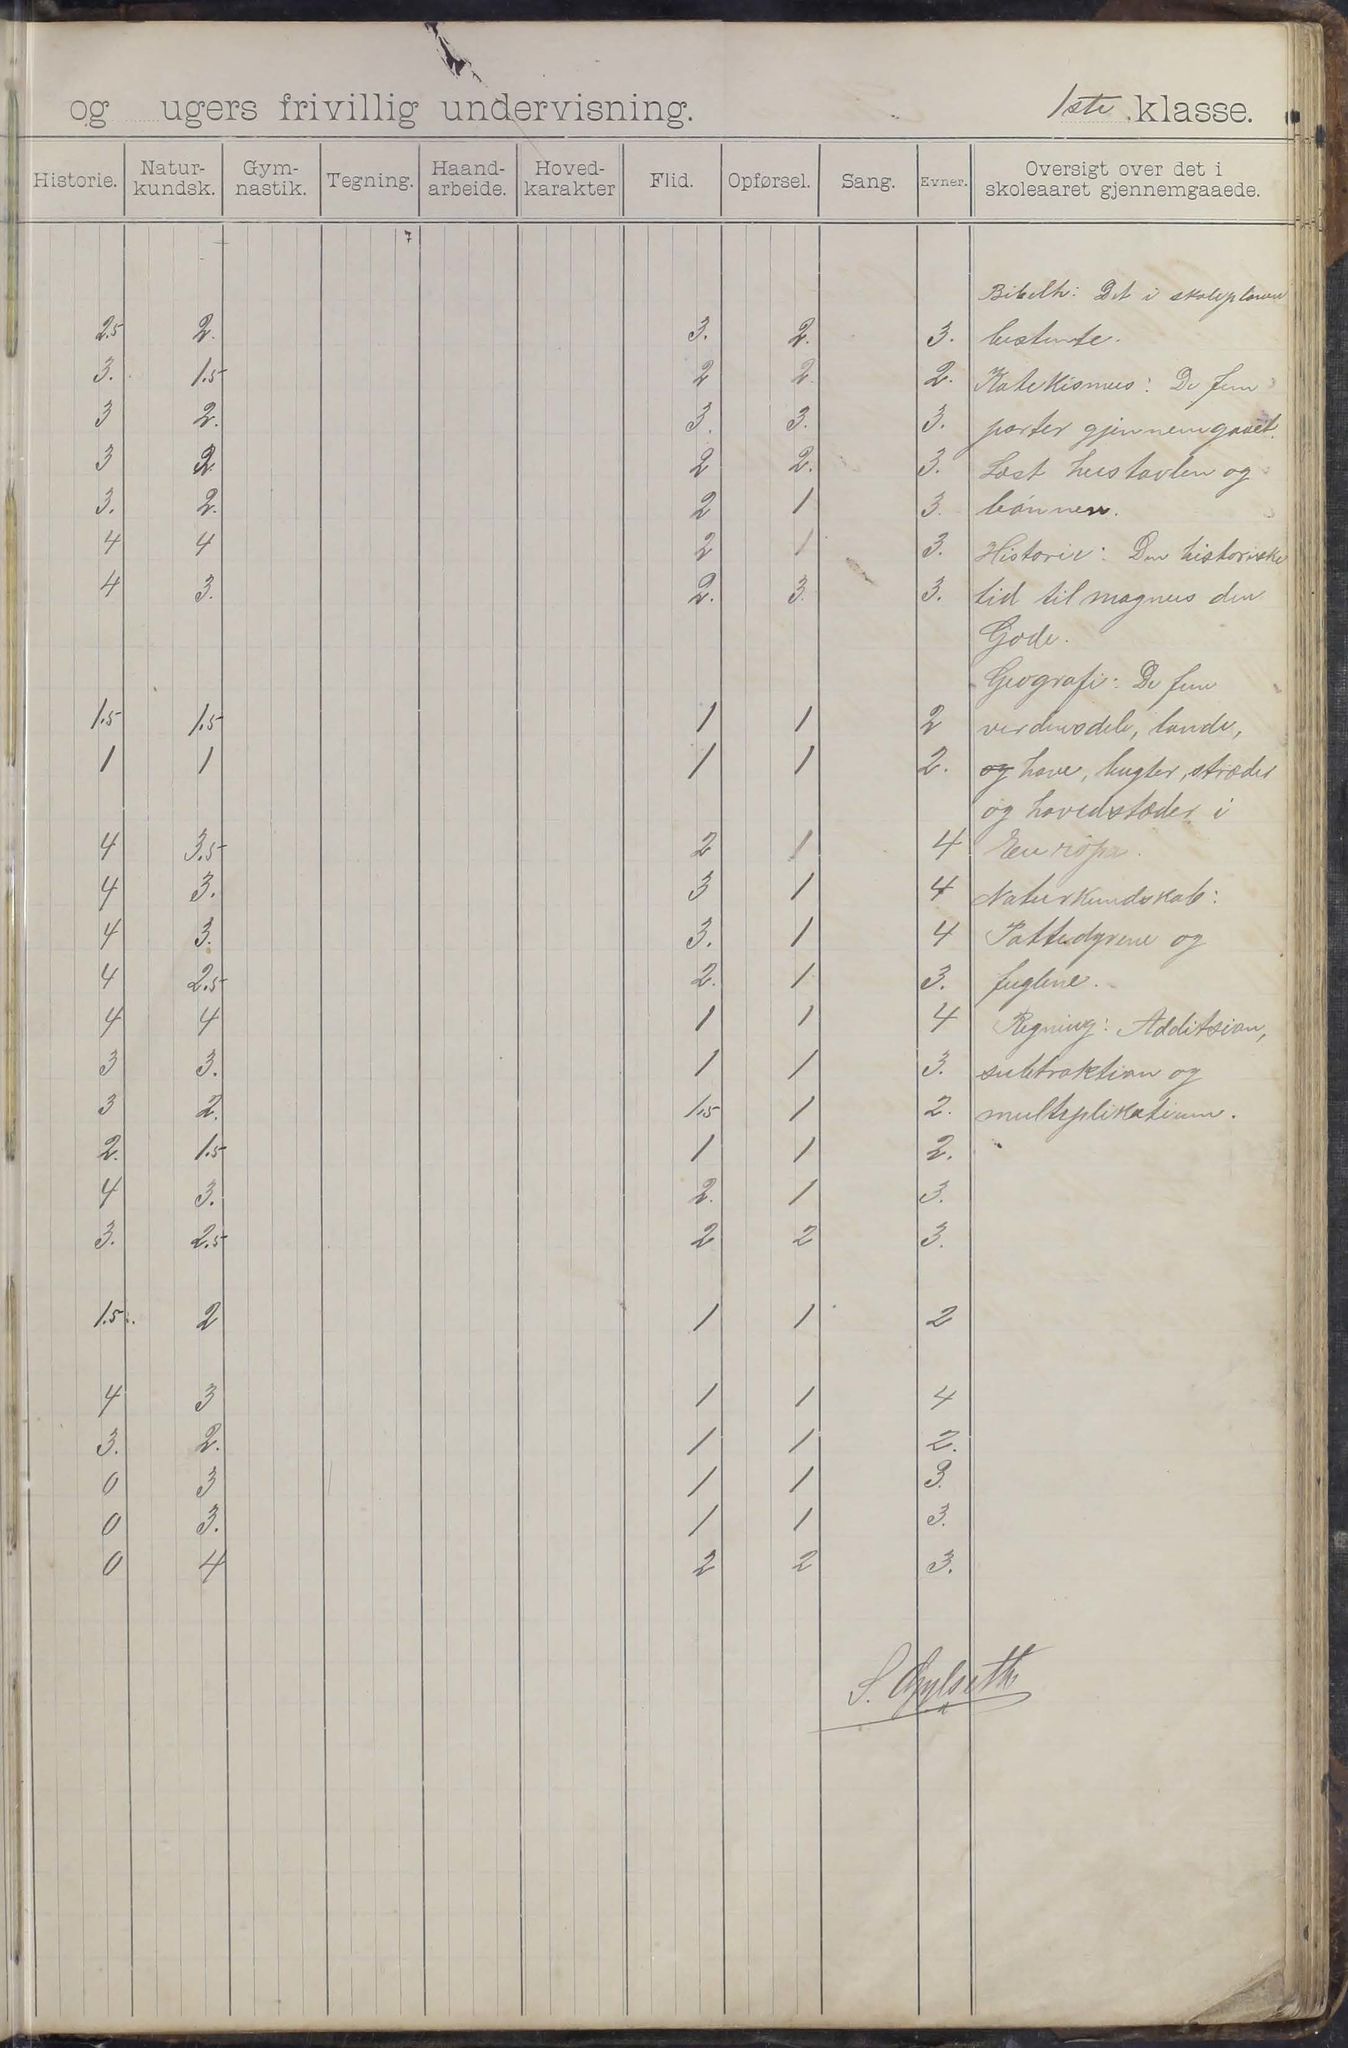 og ugers frivillig undervisning. 1ste klasse.
Historie. Natur-kundsk. Gym-nastik. Tegning. Haand-arbeide. Hoved-karakter Flid. Opførsel. Sang. Evner. Oversigt over det i skoleaaret gjennemgaaede.
Bibelh: Det i skoleplanen
2.5 2. 3. 2. 3. bestemte.
3. 1.5 2 2. 2. Katekismus: De fem
3 2. 3. 3. 3. parter gjennemgaaet.
3 2 2 2. 3. Læst hustavlen og
3. 2. 2 1 3. bønnen.
4 4 2 1 3. Historie: Den historiske
4 3. 2. 3. 3. tid til magnus den
Gode.
Geografi: De fem
1.5 1.5 1 1 2 verdensdele, lande,
1 1 1 1 2. og have, bugter, stræder
og hovedstæder i
4 3.5 2 1 4 Europa.
4 3. 3 1 4 Naturkundskab:
4 3. 3. 1 4 Pattedyrene og
4 2.5 2. 1 3. fuglene.
4 4 1 1 4 Regning: Additsion,
3 3. 1 1 3. subtraktion og
3 2. 1.5 1 2. multiplikatiom.
2. 1.5 1 1 2.
4 3. 2. 1 3.
3. 2.5 2 2 3.
1.5 2 1 1 2
4 3 1 1 4
3. 2. 1 1 2.
0 3 1 1 3.
0 3. 1 1 3.
0 4 2 2 3.
S. Gylseth